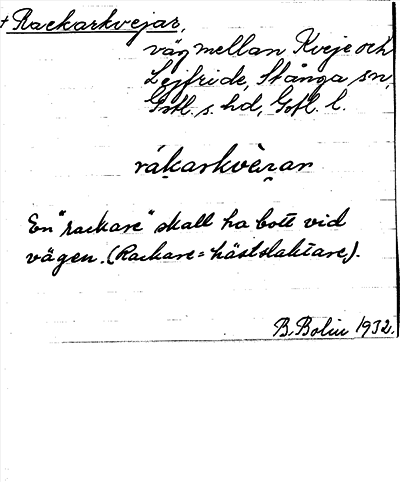 + Rackarkvejar,
väg mellan Kveje och
Lejfride, Stånga sn,
Gotl. s. hd, Gotl. l.
råkarkvèrar
En "rackare" skall ha bott vid
vägen. (Rackare = hästslaktare).
B. Bolin 1932.